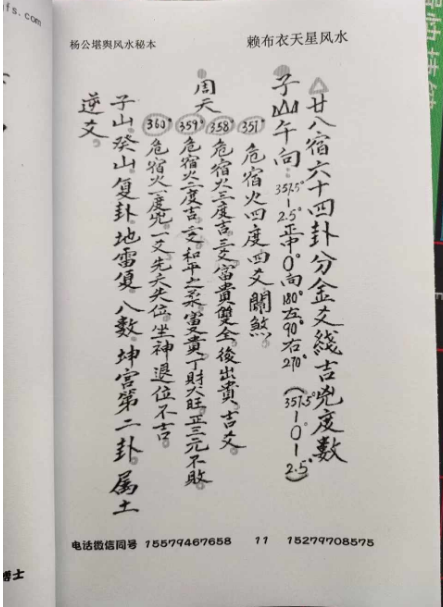 杨公堪舆风水秘本
赖布衣天星风水
廿八宿六十四卦分金爻綫吉兇度数
子山午向：357.5°－2.5°正中0°向180°左90°右270°（357.5°－0－2.5°）
357° 危宿火四度四爻關煞。
358° 危宿火三度吉三爻富貴雙全後出貴吉爻
周天
359° 危宿火二度吉二爻和平之系富貴丁財大旺正三元不敗
360° 危宿火一度兇一爻先天失位坐神退位不吉。
子山癸山复卦地雷復八數坤宫第二卦属土
逆爻。
电话微信同号 15579467658 11 15279708575
博士
fs.com